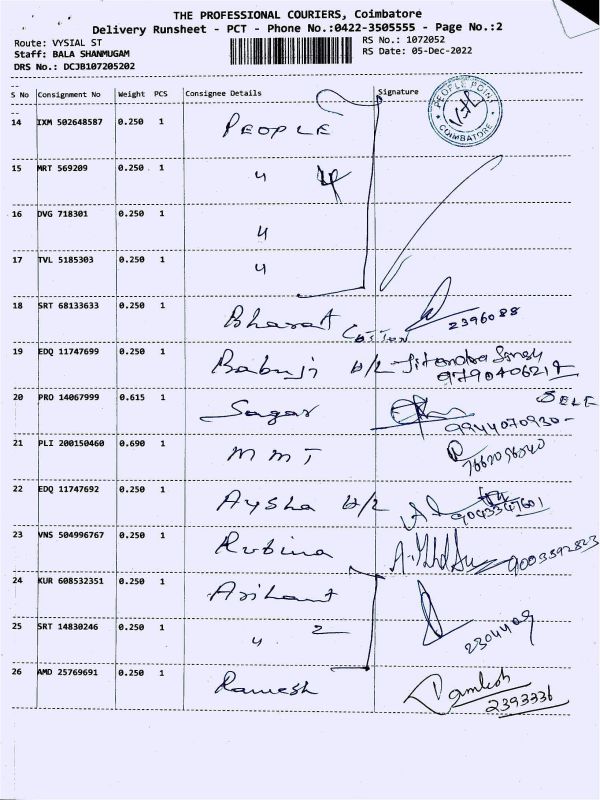 THE PROFESSIONAL COURIERS, Coimbatore
Delivery Runsheet - PCT - Phone No.:0422-3505555 - Page No.:2
Route: VYSIAL ST
RS No.: 1072052
Staff: BALA SHANMUGAM
RS Date: 05-Dec-2022
DRS No.: DCJB107205202
S No Consignment No Weight PCS Consignee Details Signature
PEOPLE POINT
COIMBATORE
14 IXM 502648587 0.250 1 PEOPLE
15 MRT 569209 0.250 1 "
16 DVG 718301 0.250 1 "
17 TVL 5185303 0.250 1 "
18 SRT 68133633 0.250 1 Bharat Cotton 2396088
19 EDQ 11747699 0.250 1 Babuji H/L Jitendra Singh
9790406217
20 PRO 14067999 0.615 1 Sagar SELF
9944070930
21 PLI 200150460 0.690 1 MMT
22 EDQ 11747692 0.250 1 Aysha H/L
23 VNS 504996767 0.250 1 Rubina 9003592823
24 KUR 608532351 0.250 1 Arihant
25 SRT 14830246 0.250 1 " 2 2304409
26 AMD 25769691 0.250 1 Ramesh
2393336